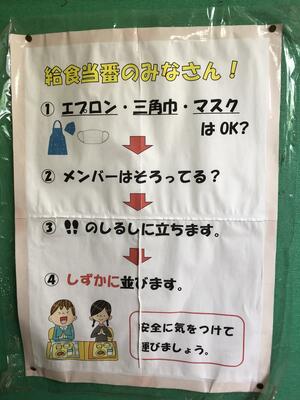 給食当番のみなさん！
① エプロン・三角巾・マスク
はOK?
② メンバーはそろってる？
③ 👣 のしるしに立ちます。
④ しずかに並びます。
安全に気をつけて
運びましょう。